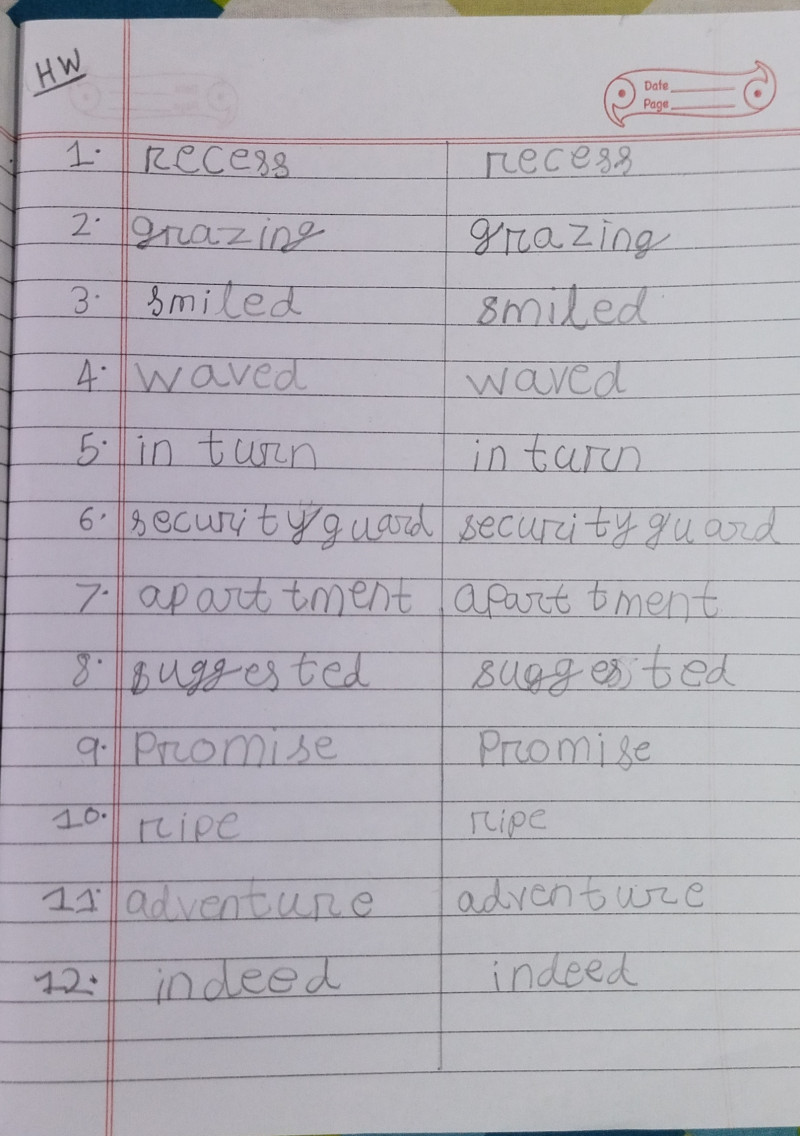 HW
Date
Page
1. recess recess
2. grazing grazing
3. smiled smiled
4. waved waved
5. in turn in turn
6. security guard security guard
7. aparttment aparttment
8. suggested suggested
9. Promise Promise
10. ripe ripe
11. adventure adventure
12. indeed indeed